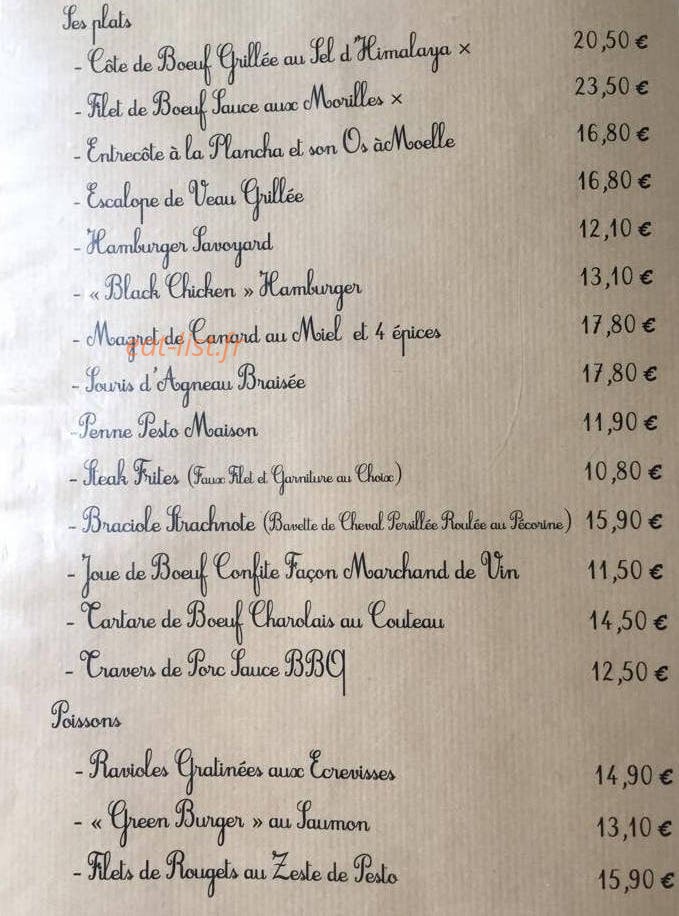 Les plats
- Côte de Boeuf Grillée au Sel d'Himalaya × 20,50 €
- Filet de Boeuf Sauce aux Morilles × 23,50 €
- Entrecôte à la Plancha et son Os à Moelle 16,80 €
- Escalope de Veau Grillée 16,80 €
- Hamburger Savoyard 12,10 €
- « Black Chicken » Hamburger 13,10 €
- Magret de Canard au Miel et 4 épices 17,80 €
eat-list.fr
- Souris d'Agneau Braisée 17,80 €
- Penne Pesto Maison 11,90 €
- Steak Frites (Faux Filet et Garniture au Choix) 10,80 €
- Braciole Strachnote (Bavette de Cheval Persillée Roulée au Pécorine) 15,90 €
- Joue de Boeuf Confite Façon Marchand de Vin 11,50 €
- Tartare de Boeuf Charolais au Couteau 14,50 €
- Travers de Porc Sauce BBQ 12,50 €
Poissons
- Ravioles Gratinées aux Ecrevisses 14,90 €
- « Green Burger » au Saumon 13,10 €
- Filets de Rougets au Zeste de Pesto 15,90 €